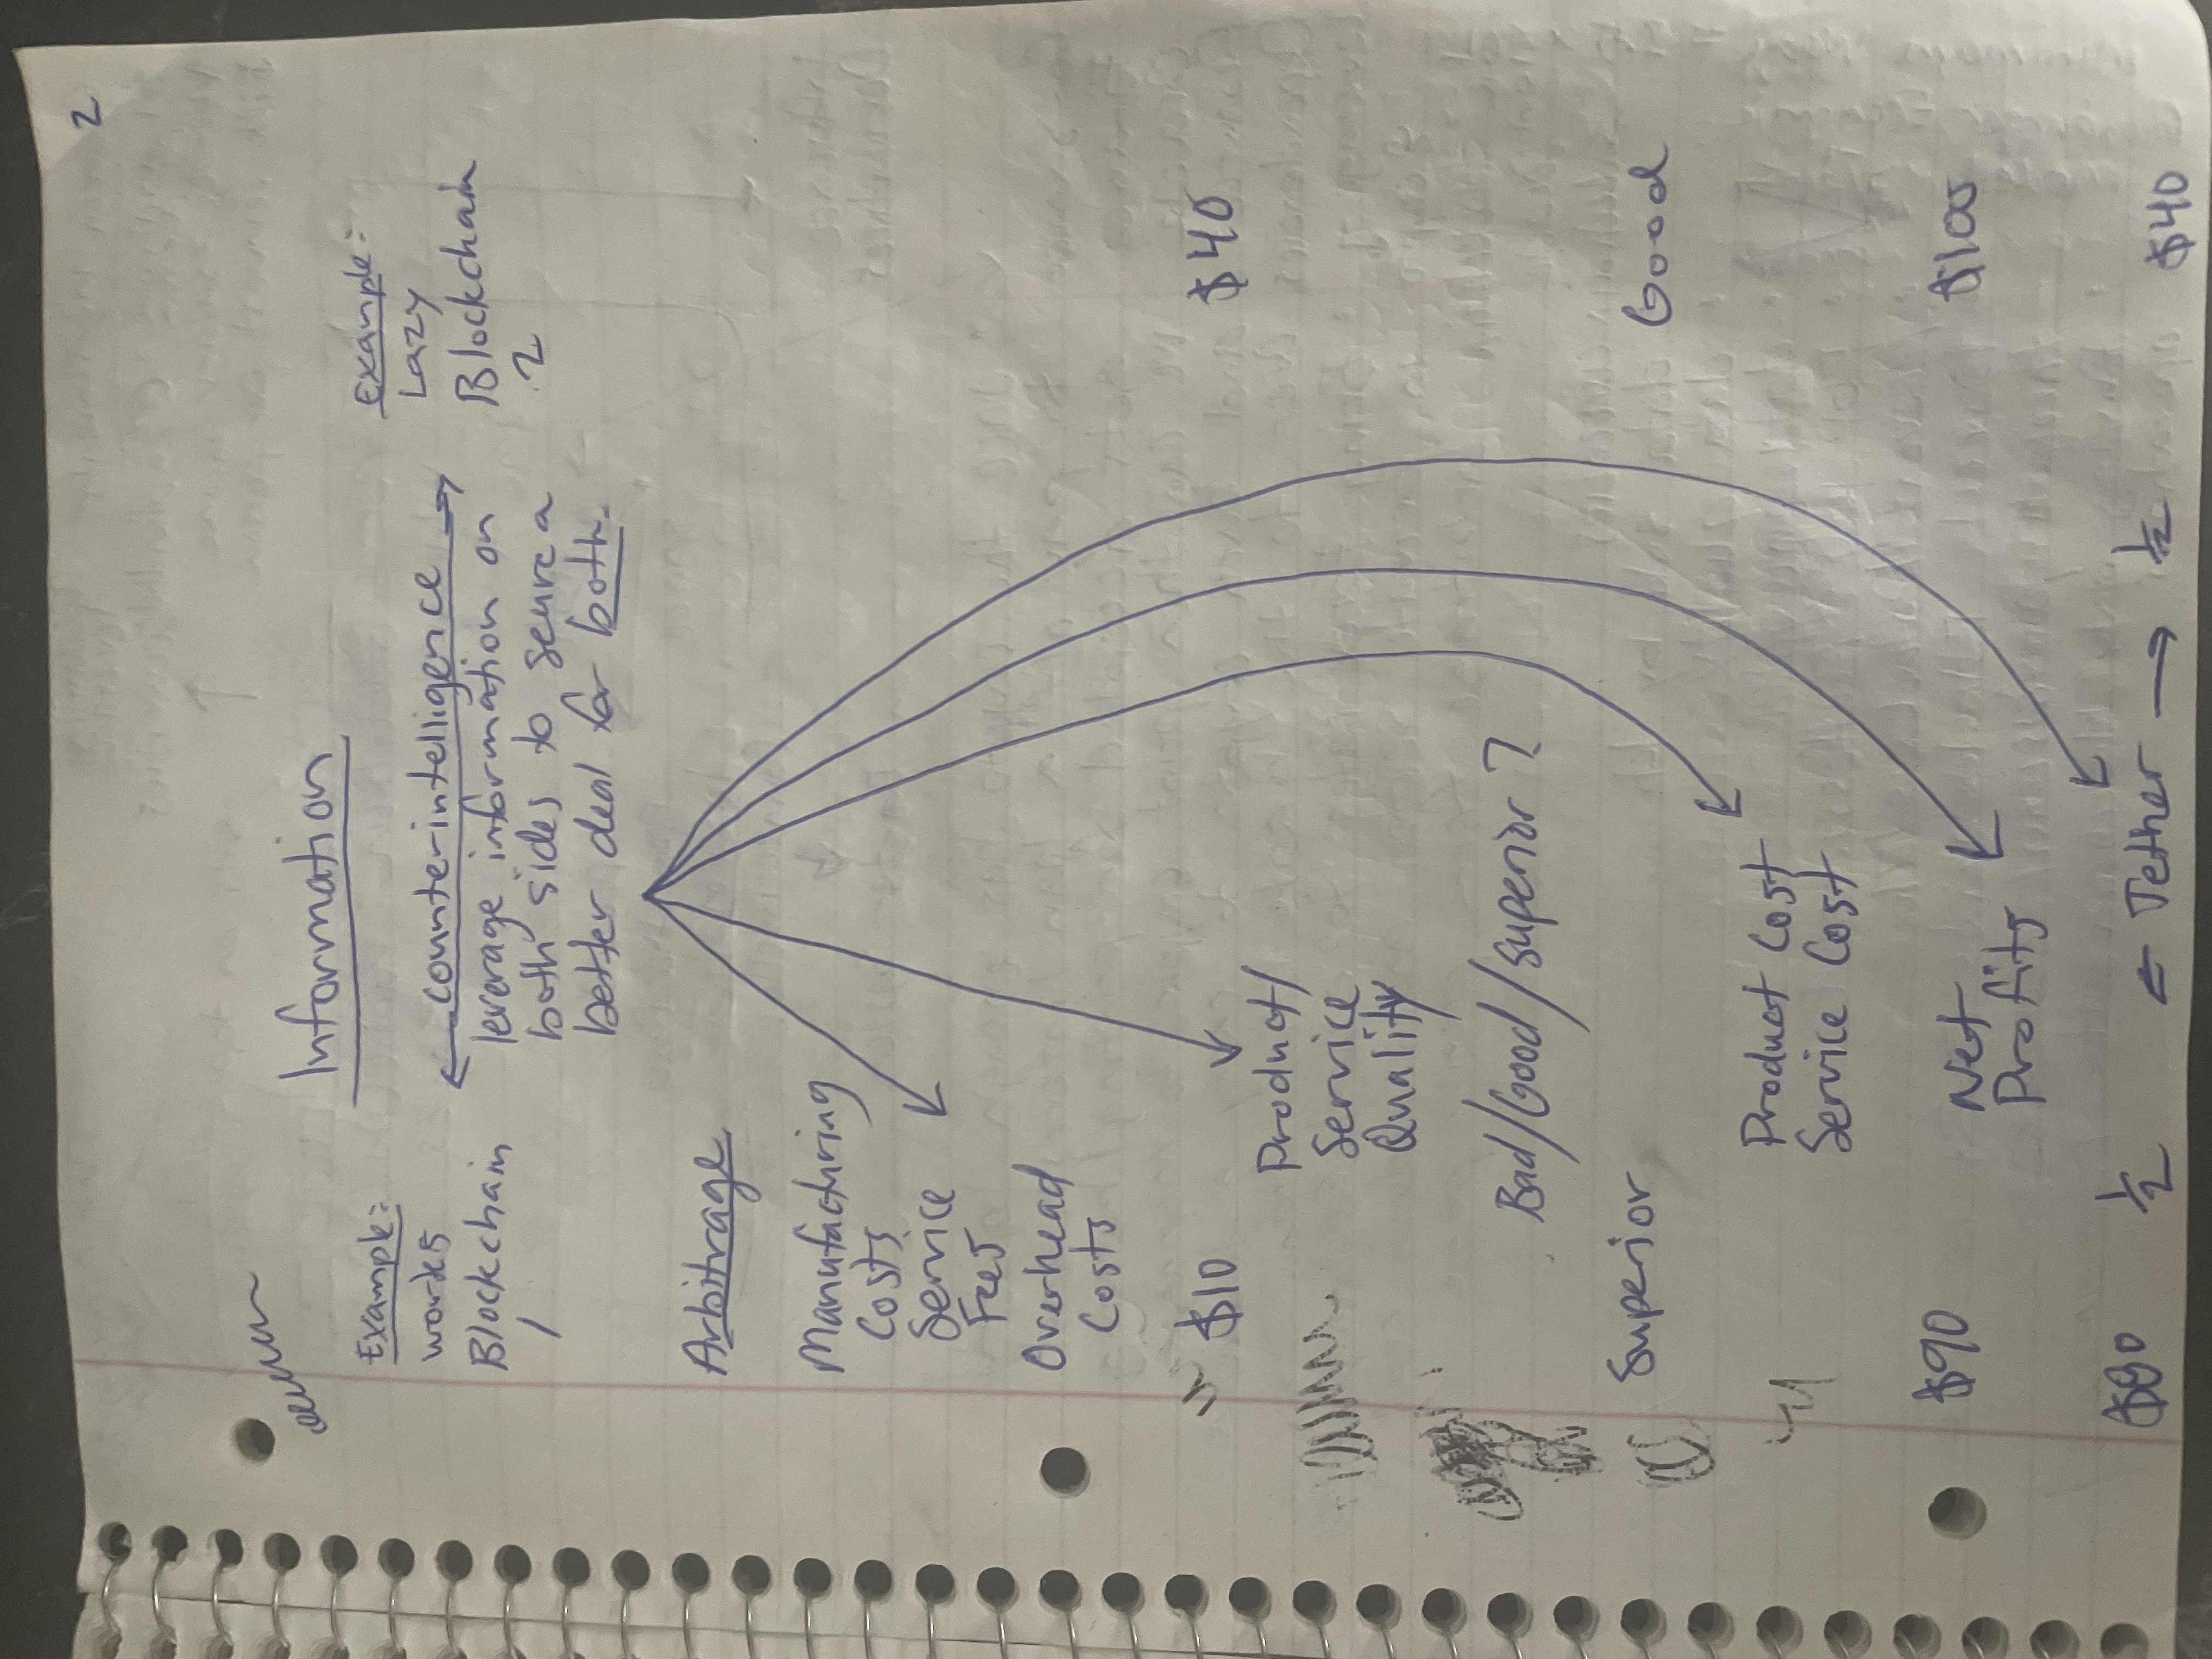 2
Information
Example:
works
Blockchain
1
← counterintelligence →
leverage information on
both sides to secure a
better deal for both.
Example:
Lazy
Blockchain
2
Arbitrage
Manufacturing
Costs
Service
Fees
Overhead
Costs
$10
$40
Product/
Service
Quality
Bad/Good/Superior?
Superior
Good
Product Cost
Service Cost
$90
$100
Net
Profits
$80 1/2 ← Tether → 1/2 $40